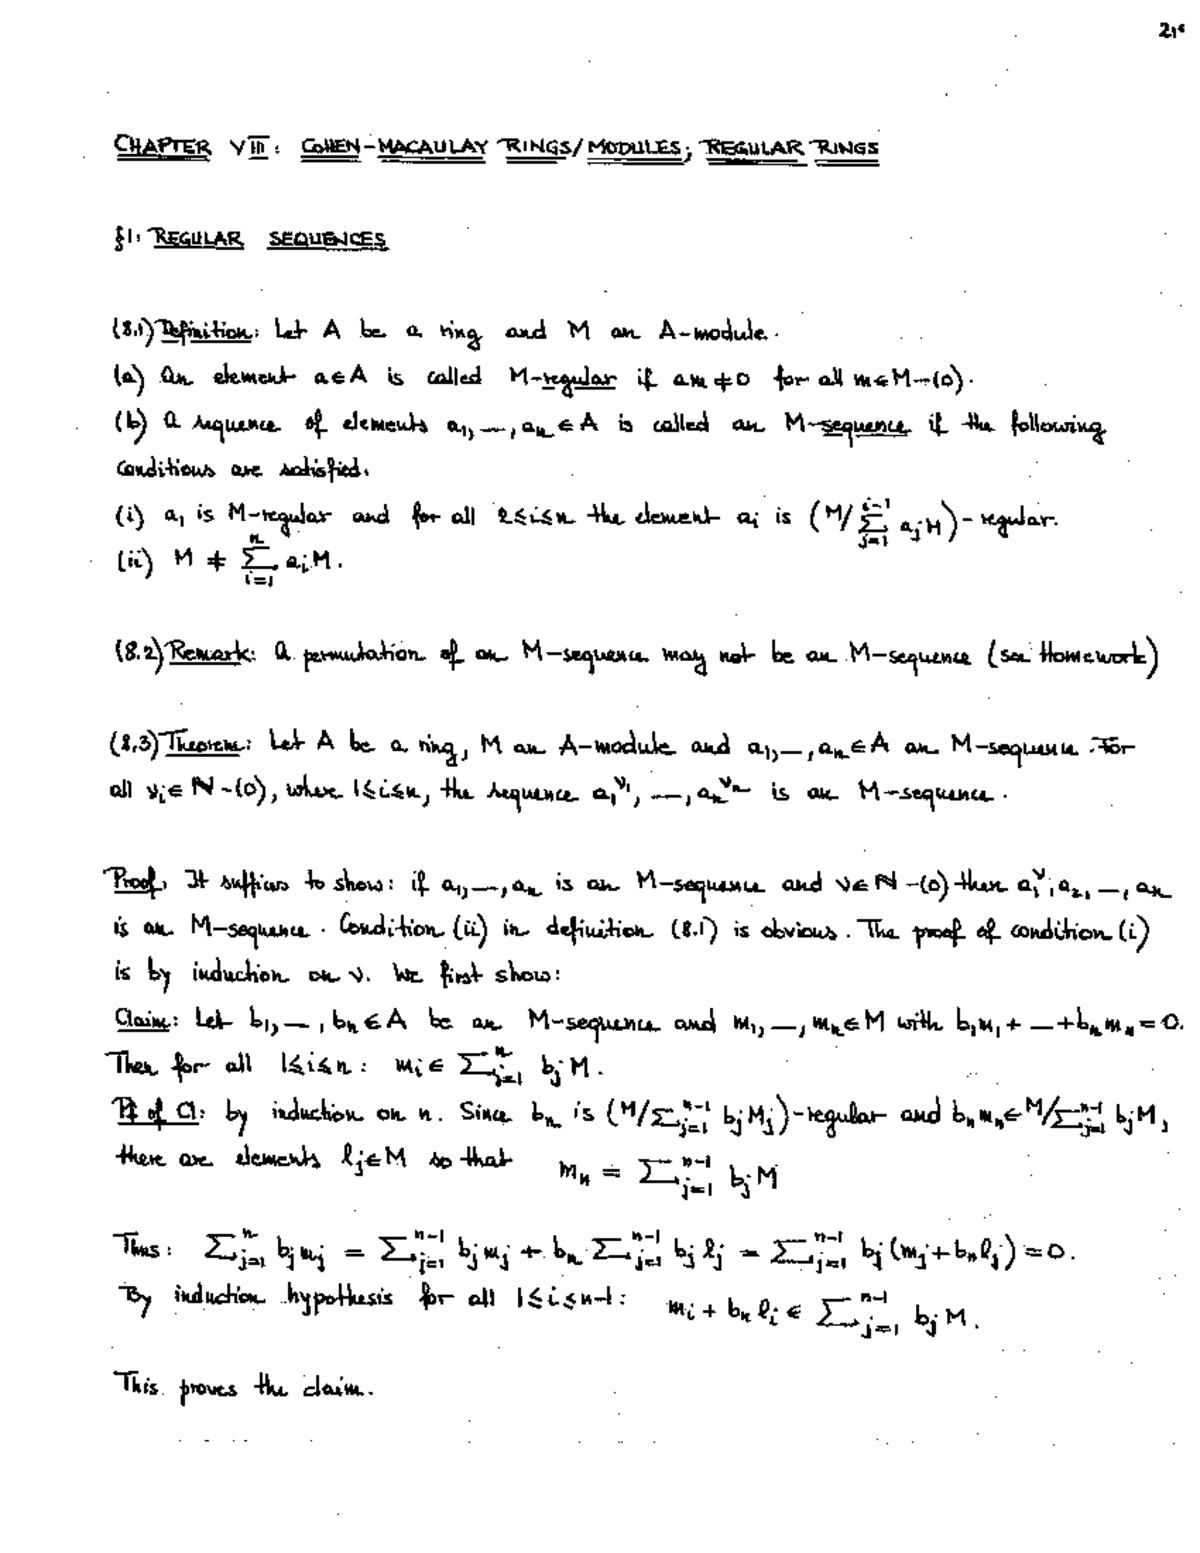 CHAPTER VIII: COHEN-MACAULAY RINGS/MODULES; REGULAR RINGS
§1: REGULAR SEQUENCES
(8.1) Definition: Let A be a ring and M an A-module.
(a) An element a∈A is called M-regular if am≠0 for all m∈M-(0).
(b) A sequence of elements a₁,—,aₙ∈A is called an M-sequence if the following
conditions are satisfied.
(i) a₁ is M-regular and for all 2≤i≤n the element aᵢ is (M/∑_{j=1}^{i-1} aⱼM)-regular.
(ii) M ≠ ∑_{i=1}^{n} aᵢM.
(8.2) Remark: A permutation of an M-sequence may not be an M-sequence (see Homework)
(8.3) Theorem: Let A be a ring, M an A-module and a₁,—,aₙ∈A an M-sequence. For
all νᵢ∈ℕ-(0), where 1≤i≤n, the sequence a₁^{ν₁}, —, aₙ^{νₙ} is an M-sequence.
Proof. It suffices to show: if a₁,—,aₙ is an M-sequence and ν∈ℕ-(0) then a₁^ν, a₂, —, aₙ
is an M-sequence. Condition (ii) in definition (8.1) is obvious. The proof of condition (i)
is by induction on ν. We first show:
Claim: Let b₁,—,bₙ∈A be an M-sequence and m₁,—,mₙ∈M with b₁m₁+—+bₙmₙ=0.
Then for all 1≤i≤n: mᵢ∈ ∑_{j=1}^{n} bⱼM.
Pf of Cl: by induction on n. Since bₙ is (M/∑_{j=1}^{n-1} bⱼMⱼ)-regular and bₙmₙ∈M/∑_{j=1}^{n-1} bⱼM,
there are elements lⱼ∈M so that mₙ = ∑_{j=1}^{n-1} bⱼM
Thus: ∑_{j=1}^{n} bⱼmⱼ = ∑_{j=1}^{n-1} bⱼmⱼ + bₙ ∑_{j=1}^{n-1} bⱼlⱼ = ∑_{j=1}^{n-1} bⱼ(mⱼ+bₙlⱼ)=0.
By induction hypothesis for all 1≤i≤n-1: mᵢ+bₙlᵢ∈ ∑_{j=1}^{n-1} bⱼM.
This proves the claim.